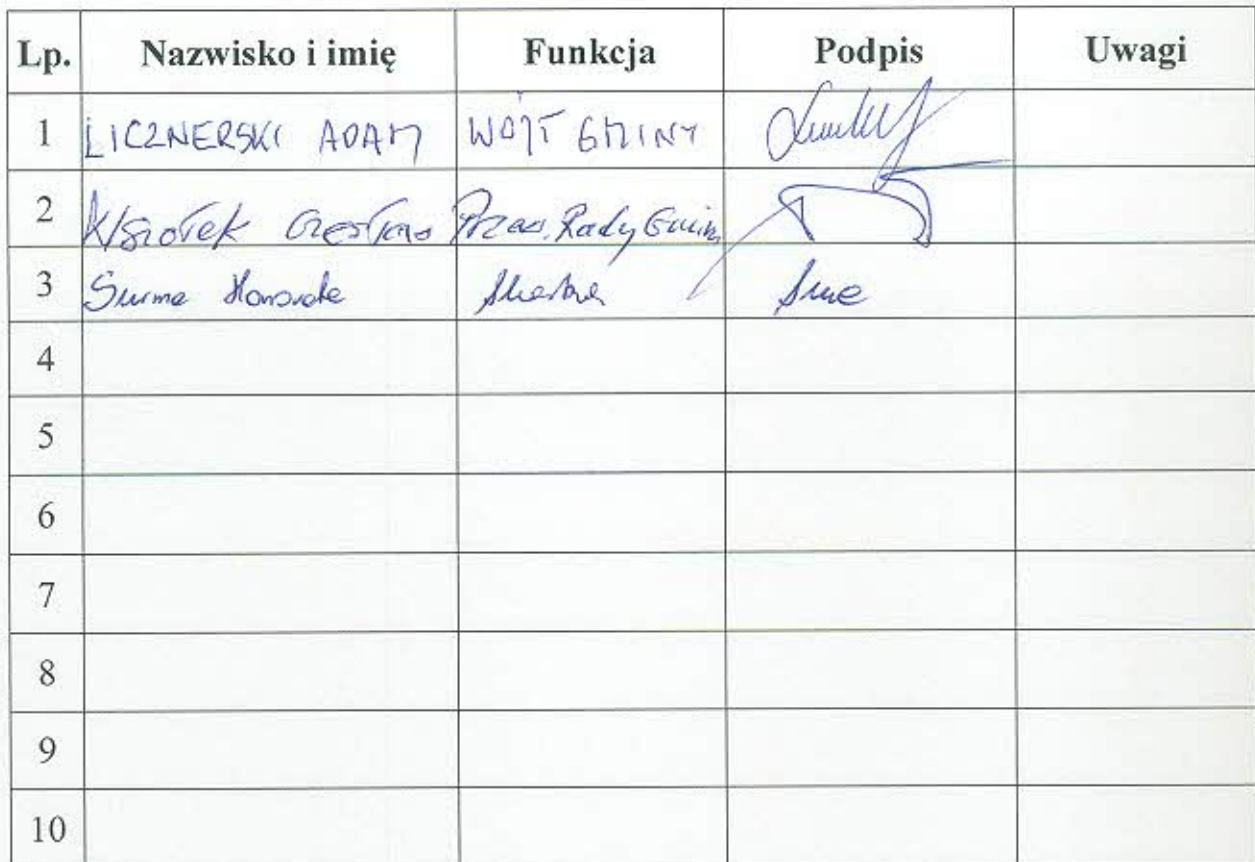 Lp. Nazwisko i imię Funkcja Podpis Uwagi
1 LICZNERSKI ADAM WÓJT GMINY
2 Czesław Przew. Rady Gminy
3 Surma
4
5
6
7
8
9
10